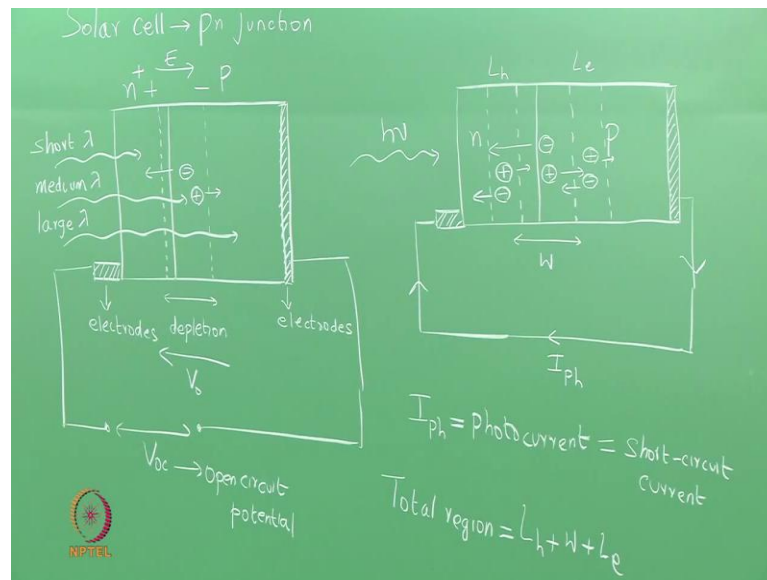 Solar cell → pn junction
E
n⁺ + - P
short λ
medium λ
large λ
⊖
⊕
electrodes depletion electrodes
V₀
Voc → open circuit
potential
Lh Le
hν
n P
⊖
⊕
⊕
⊕
⊖
⊖
W
Iph
Iph = Photocurrent = short-circuit
current
Total region = Lh + W + Le
NPTEL